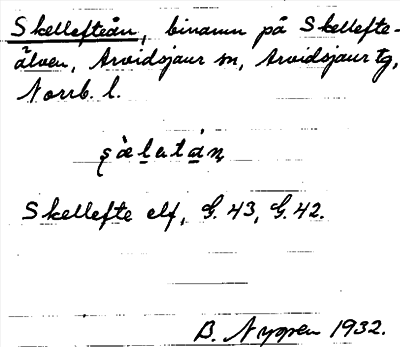 Skellefteån, binamn på Skellefte-
älven, Arvidsjaur sn, Arvidsjaur tg,
Norrb. l.
Skellefte elf, G. 43, G. 42.
B. Nyssen 1932.